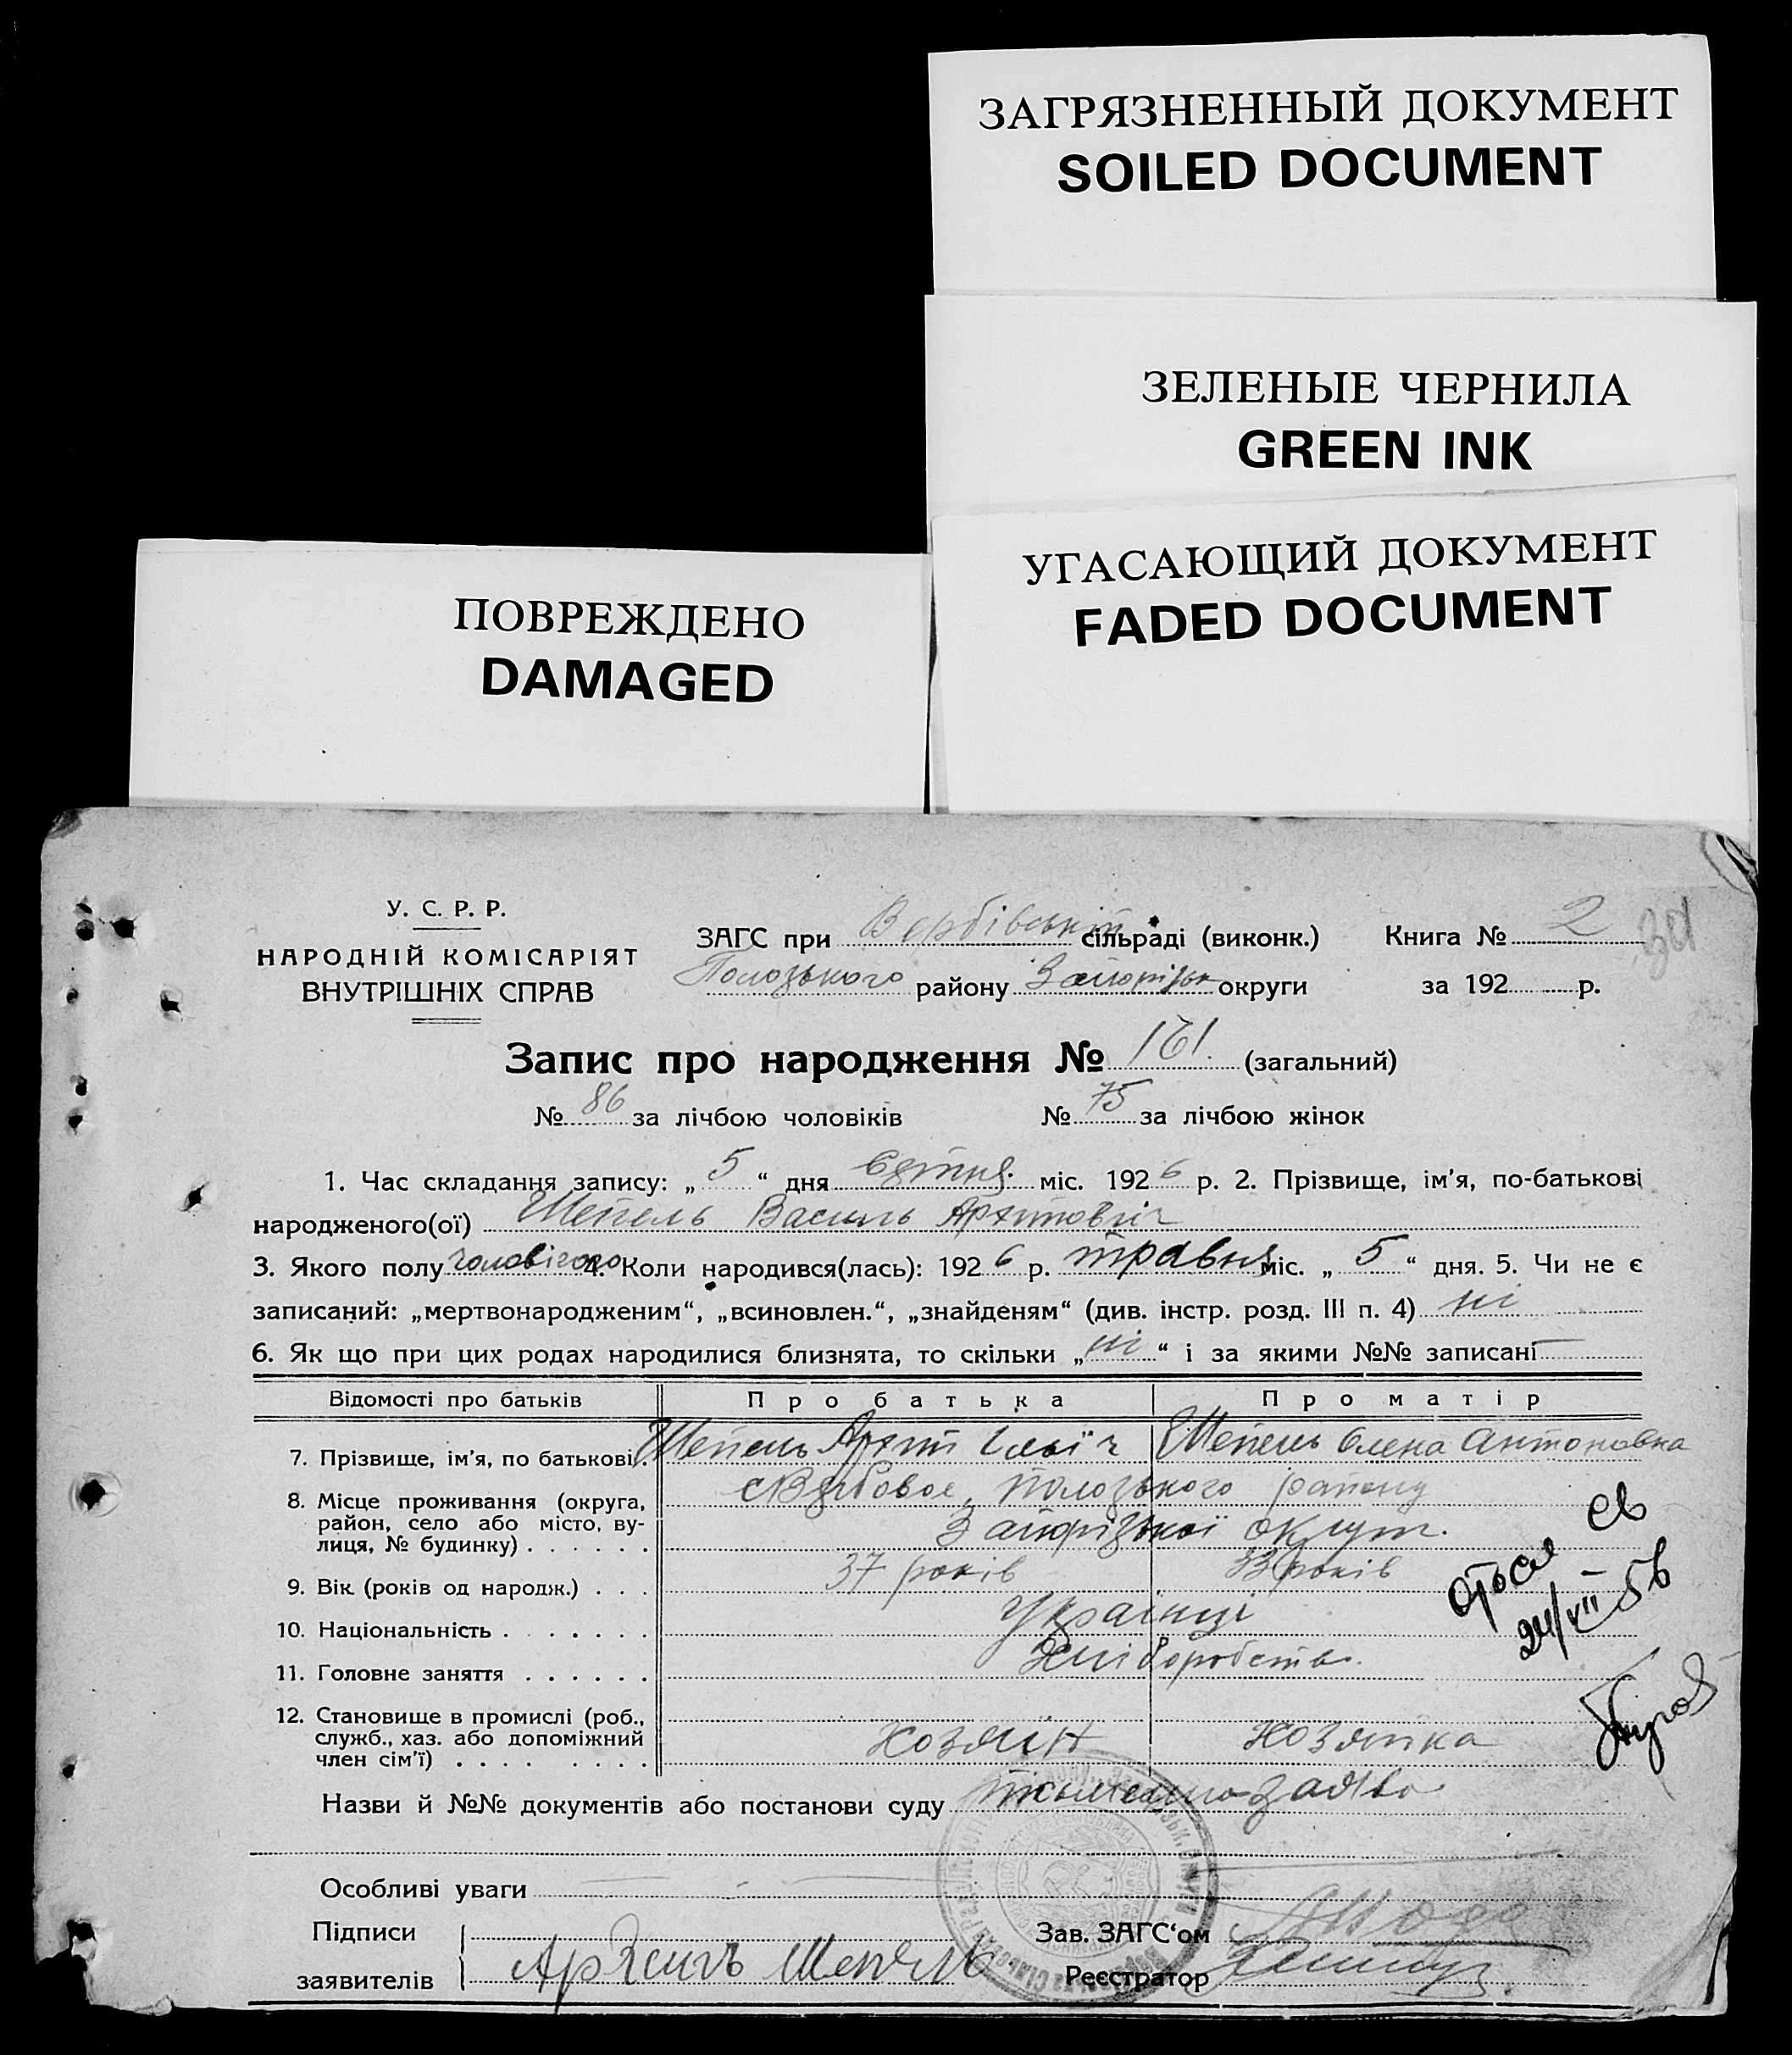 ЗАГРЯЗНЕННЫЙ ДОКУМЕНТ
SOILED DOCUMENT
ЗЕЛЕНЫЕ ЧЕРНИЛА
GREEN INK
УГАСАЮЩИЙ ДОКУМЕНТ
FADED DOCUMENT
ПОВРЕЖДЕНО
DAMAGED
У. С. Р. Р.
НАРОДНІЙ КОМІСАРІЯТ
ВНУТРІШНІХ СПРАВ
ЗАГС при Вербівській сільраді (виконк.) Книга № 2
Пологського району Запорізьк округи за 192 р.
Запис про народження № 161. (загальний)
№ 86 за лічбою чоловіків № 75 за лічбою жінок
1. Час складання запису: „ 5 “ дня міс. 192 6 р. 2. Прізвище, ім'я, по-батькові
народженого(ої) Шепель Василь Архипович
3. Якого полу чоловічого 4. Коли народився(лась): 192 6 р. травня міс. „ 5 “ дня. 5. Чи не є
записаний: „мертвонародженим“, „всиновлен.“, „знайденям“ (див. інстр. розд. III п. 4) ні
6. Як що при цих родах народилися близнята, то скільки „ ні “ і за якими №№ записані
Відомості про батьків Про батька Про матір
7. Прізвище, ім'я, по батькові Шепель Архип Ілліч Шепель Олена Антоновна
8. Місце проживання (округа, район, село або місто, вулиця, № будинку) району
Запорізької округи.
9. Вік (років од народж.) 37 років 33 років
10. Національність Українці
11. Головне заняття Хліборобство.
12. Становище в промислі (роб., служб., хаз. або допоміжний член сім'ї) Хозяїн Хозяйка
24/VII
Назви й №№ документів або постанови суду заява
Особливі уваги
Підписи
заявителів Архипъ Шепель
Зав. ЗАГС'ом
Реєстратор